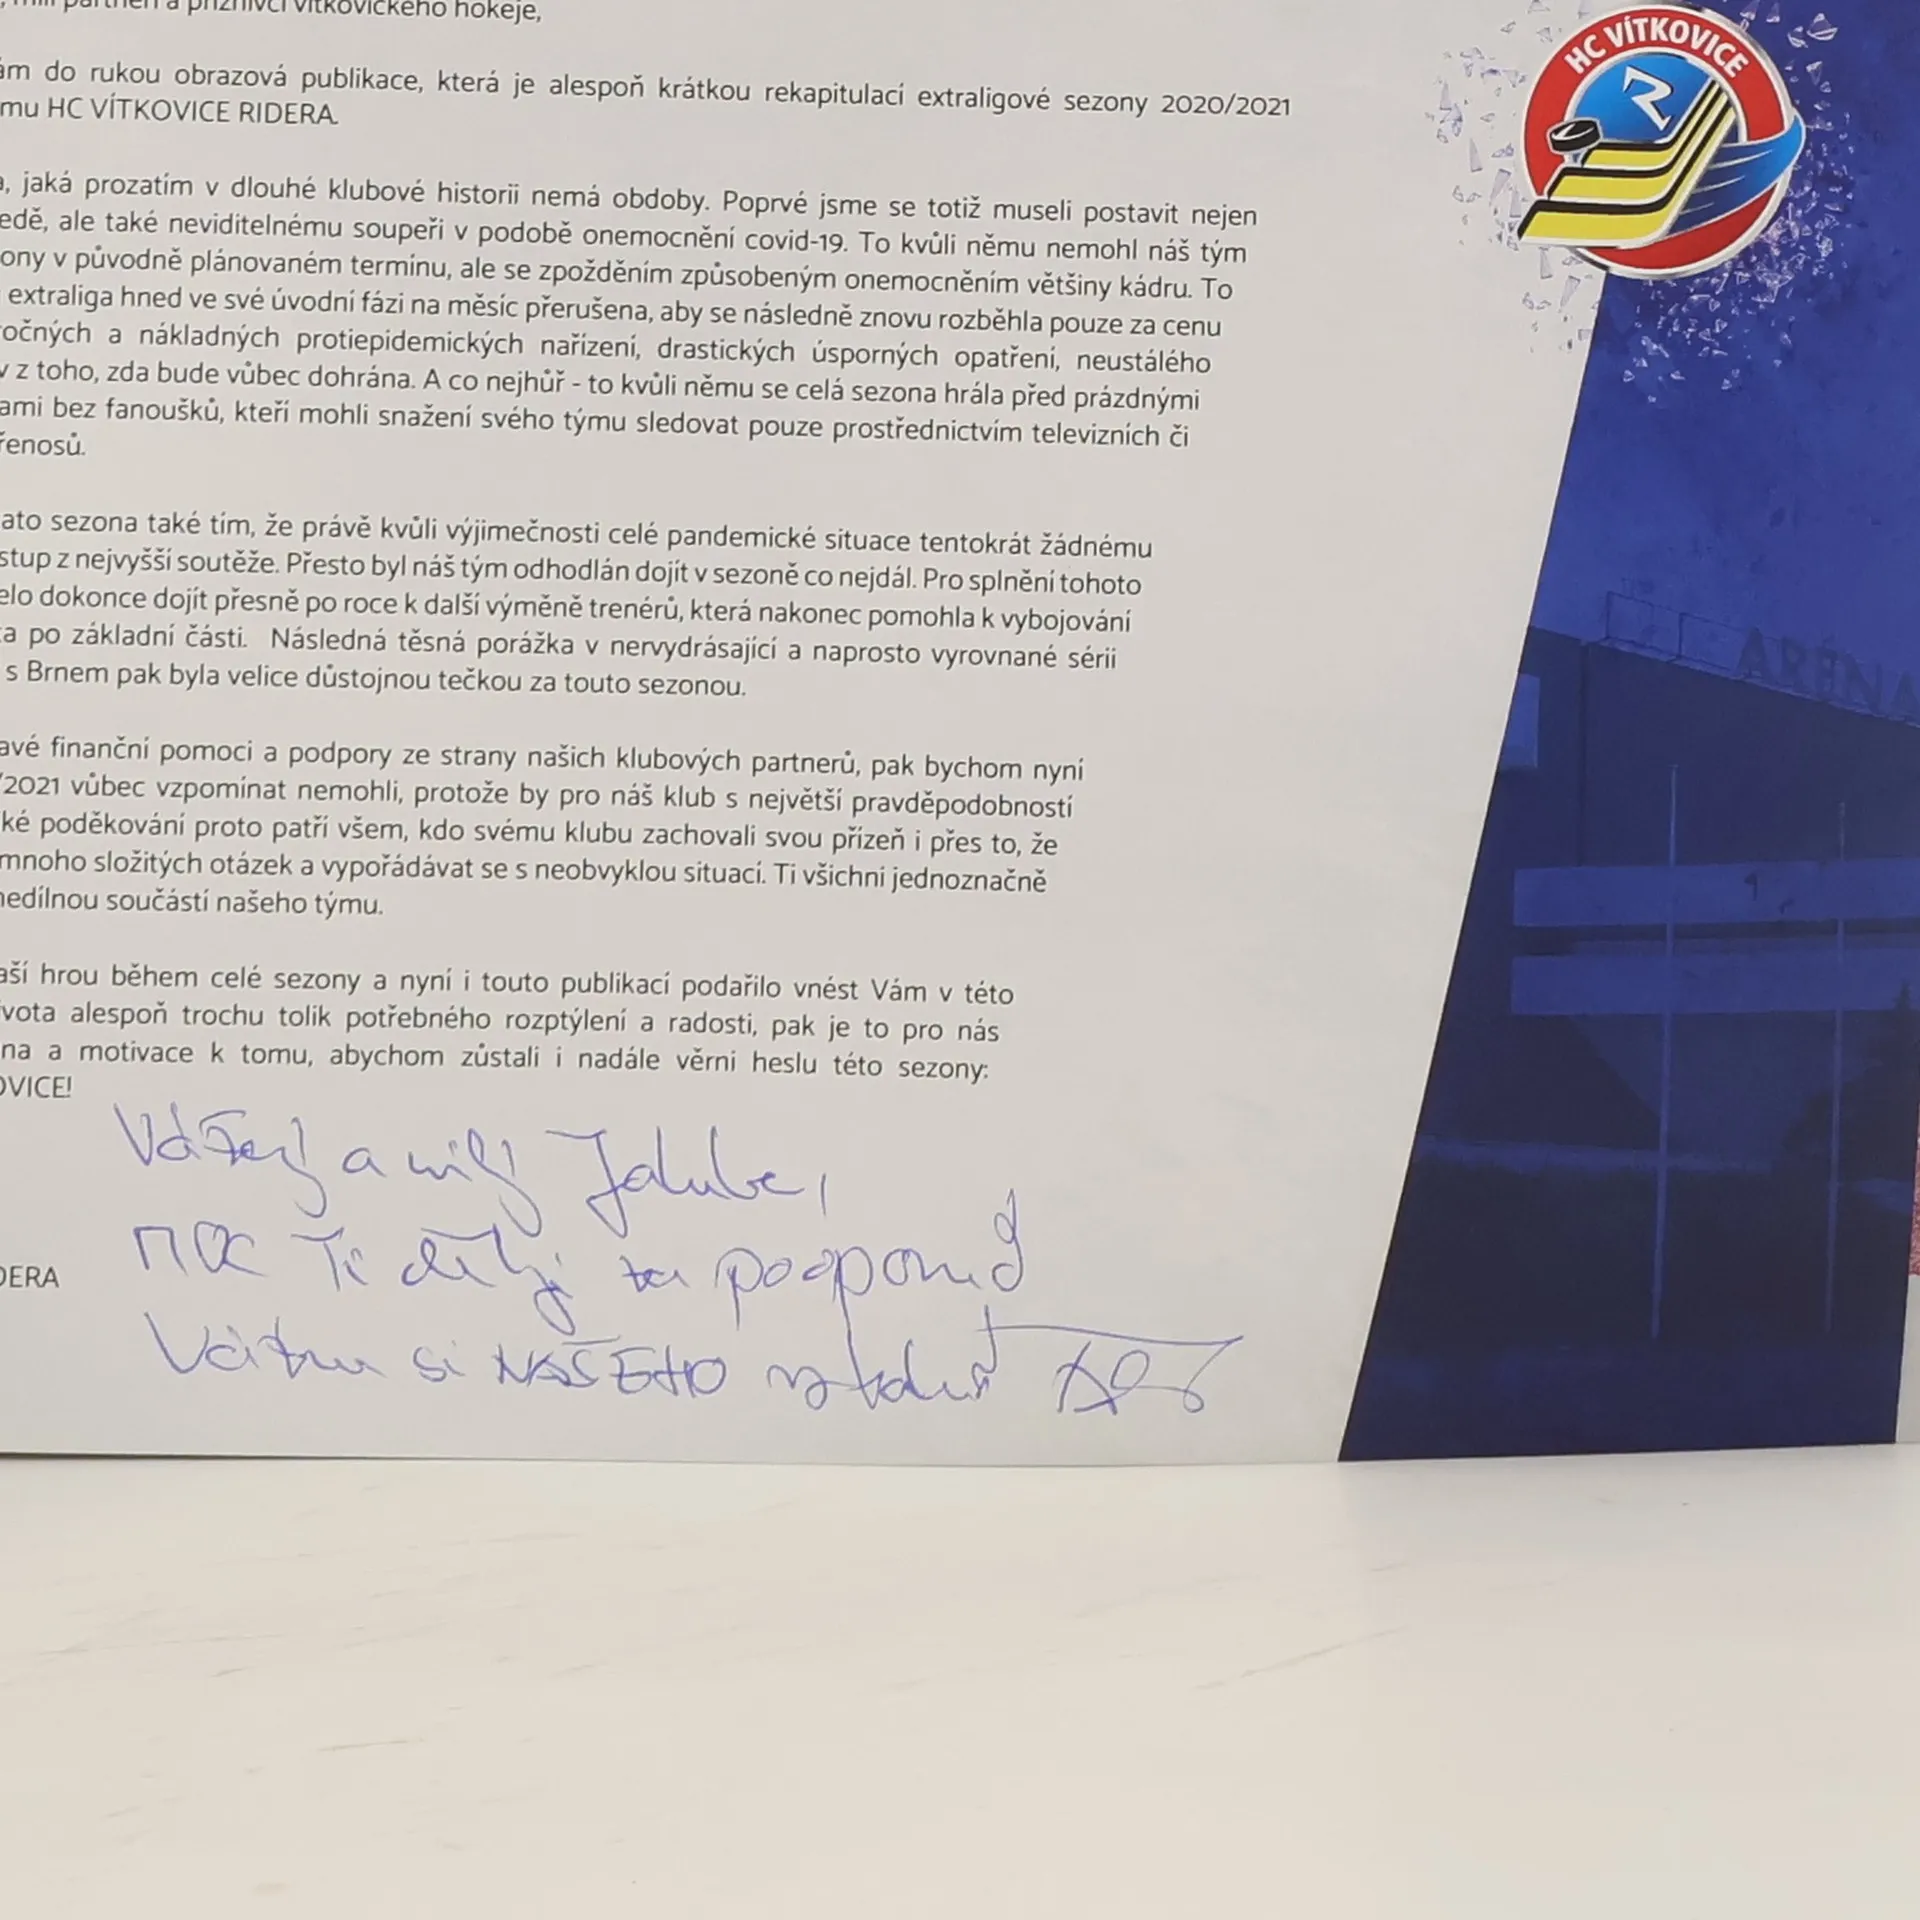 , milí partneři a příznivci vítkovického hokeje,
ám do rukou obrazová publikace, která je alespoň krátkou rekapitulací extraligové sezony 2020/2021
mu HC VÍTKOVICE RIDERA.
a, jaká prozatím v dlouhé klubové historii nemá obdoby. Poprvé jsme se totiž museli postavit nejen
edě, ale také neviditelnému soupeři v podobě onemocnění covid-19. To kvůli němu nemohl náš tým
ony v původně plánovaném termínu, ale se zpožděním způsobeným onemocněním většiny kádru. To
extraliga hned ve své úvodní fázi na měsíc přerušena, aby se následně znovu rozběhla pouze za cenu
očných a nákladných protiepidemických nařízení, drastických úsporných opatření, neustálého
v z toho, zda bude vůbec dohrána. A co nejhůř - to kvůli němu se celá sezona hrála před prázdnými
ami bez fanoušků, kteří mohli snažení svého týmu sledovat pouze prostřednictvím televizních či
řenosů.
ato sezona také tím, že právě kvůli výjimečnosti celé pandemické situace tentokrát žádnému
stup z nejvyšší soutěže. Přesto byl náš tým odhodlán dojít v sezoně co nejdál. Pro splnění tohoto
elo dokonce dojít přesně po roce k další výměně trenérů, která nakonec pomohla k vybojování
ta po základní části. Následná těsná porážka v nervydrásající a naprosto vyrovnané sérii
s Brnem pak byla velice důstojnou tečkou za touto sezonou.
avé finanční pomoci a podpory ze strany našich klubových partnerů, pak bychom nyní
/2021 vůbec vzpomínat nemohli, protože by pro náš klub s největší pravděpodobností
ké poděkování proto patří všem, kdo svému klubu zachovali svou přízeň i přes to, že
mnoho složitých otázek a vypořádávat se s neobvyklou situací. Ti všichni jednoznačně
nedílnou součástí našeho týmu.
aší hrou během celé sezony a nyní i touto publikací podařilo vnést Vám v této
ivota alespoň trochu tolik potřebného rozptýlení a radosti, pak je to pro nás
na a motivace k tomu, abychom zůstali i nadále věrni heslu této sezony:
OVICE!
DERA
Vážený a milý Jakube,
moc Ti děkuji za podporu a
Vážím si NAŠEHO vztahu
HC VÍTKOVICE
ARÉNA